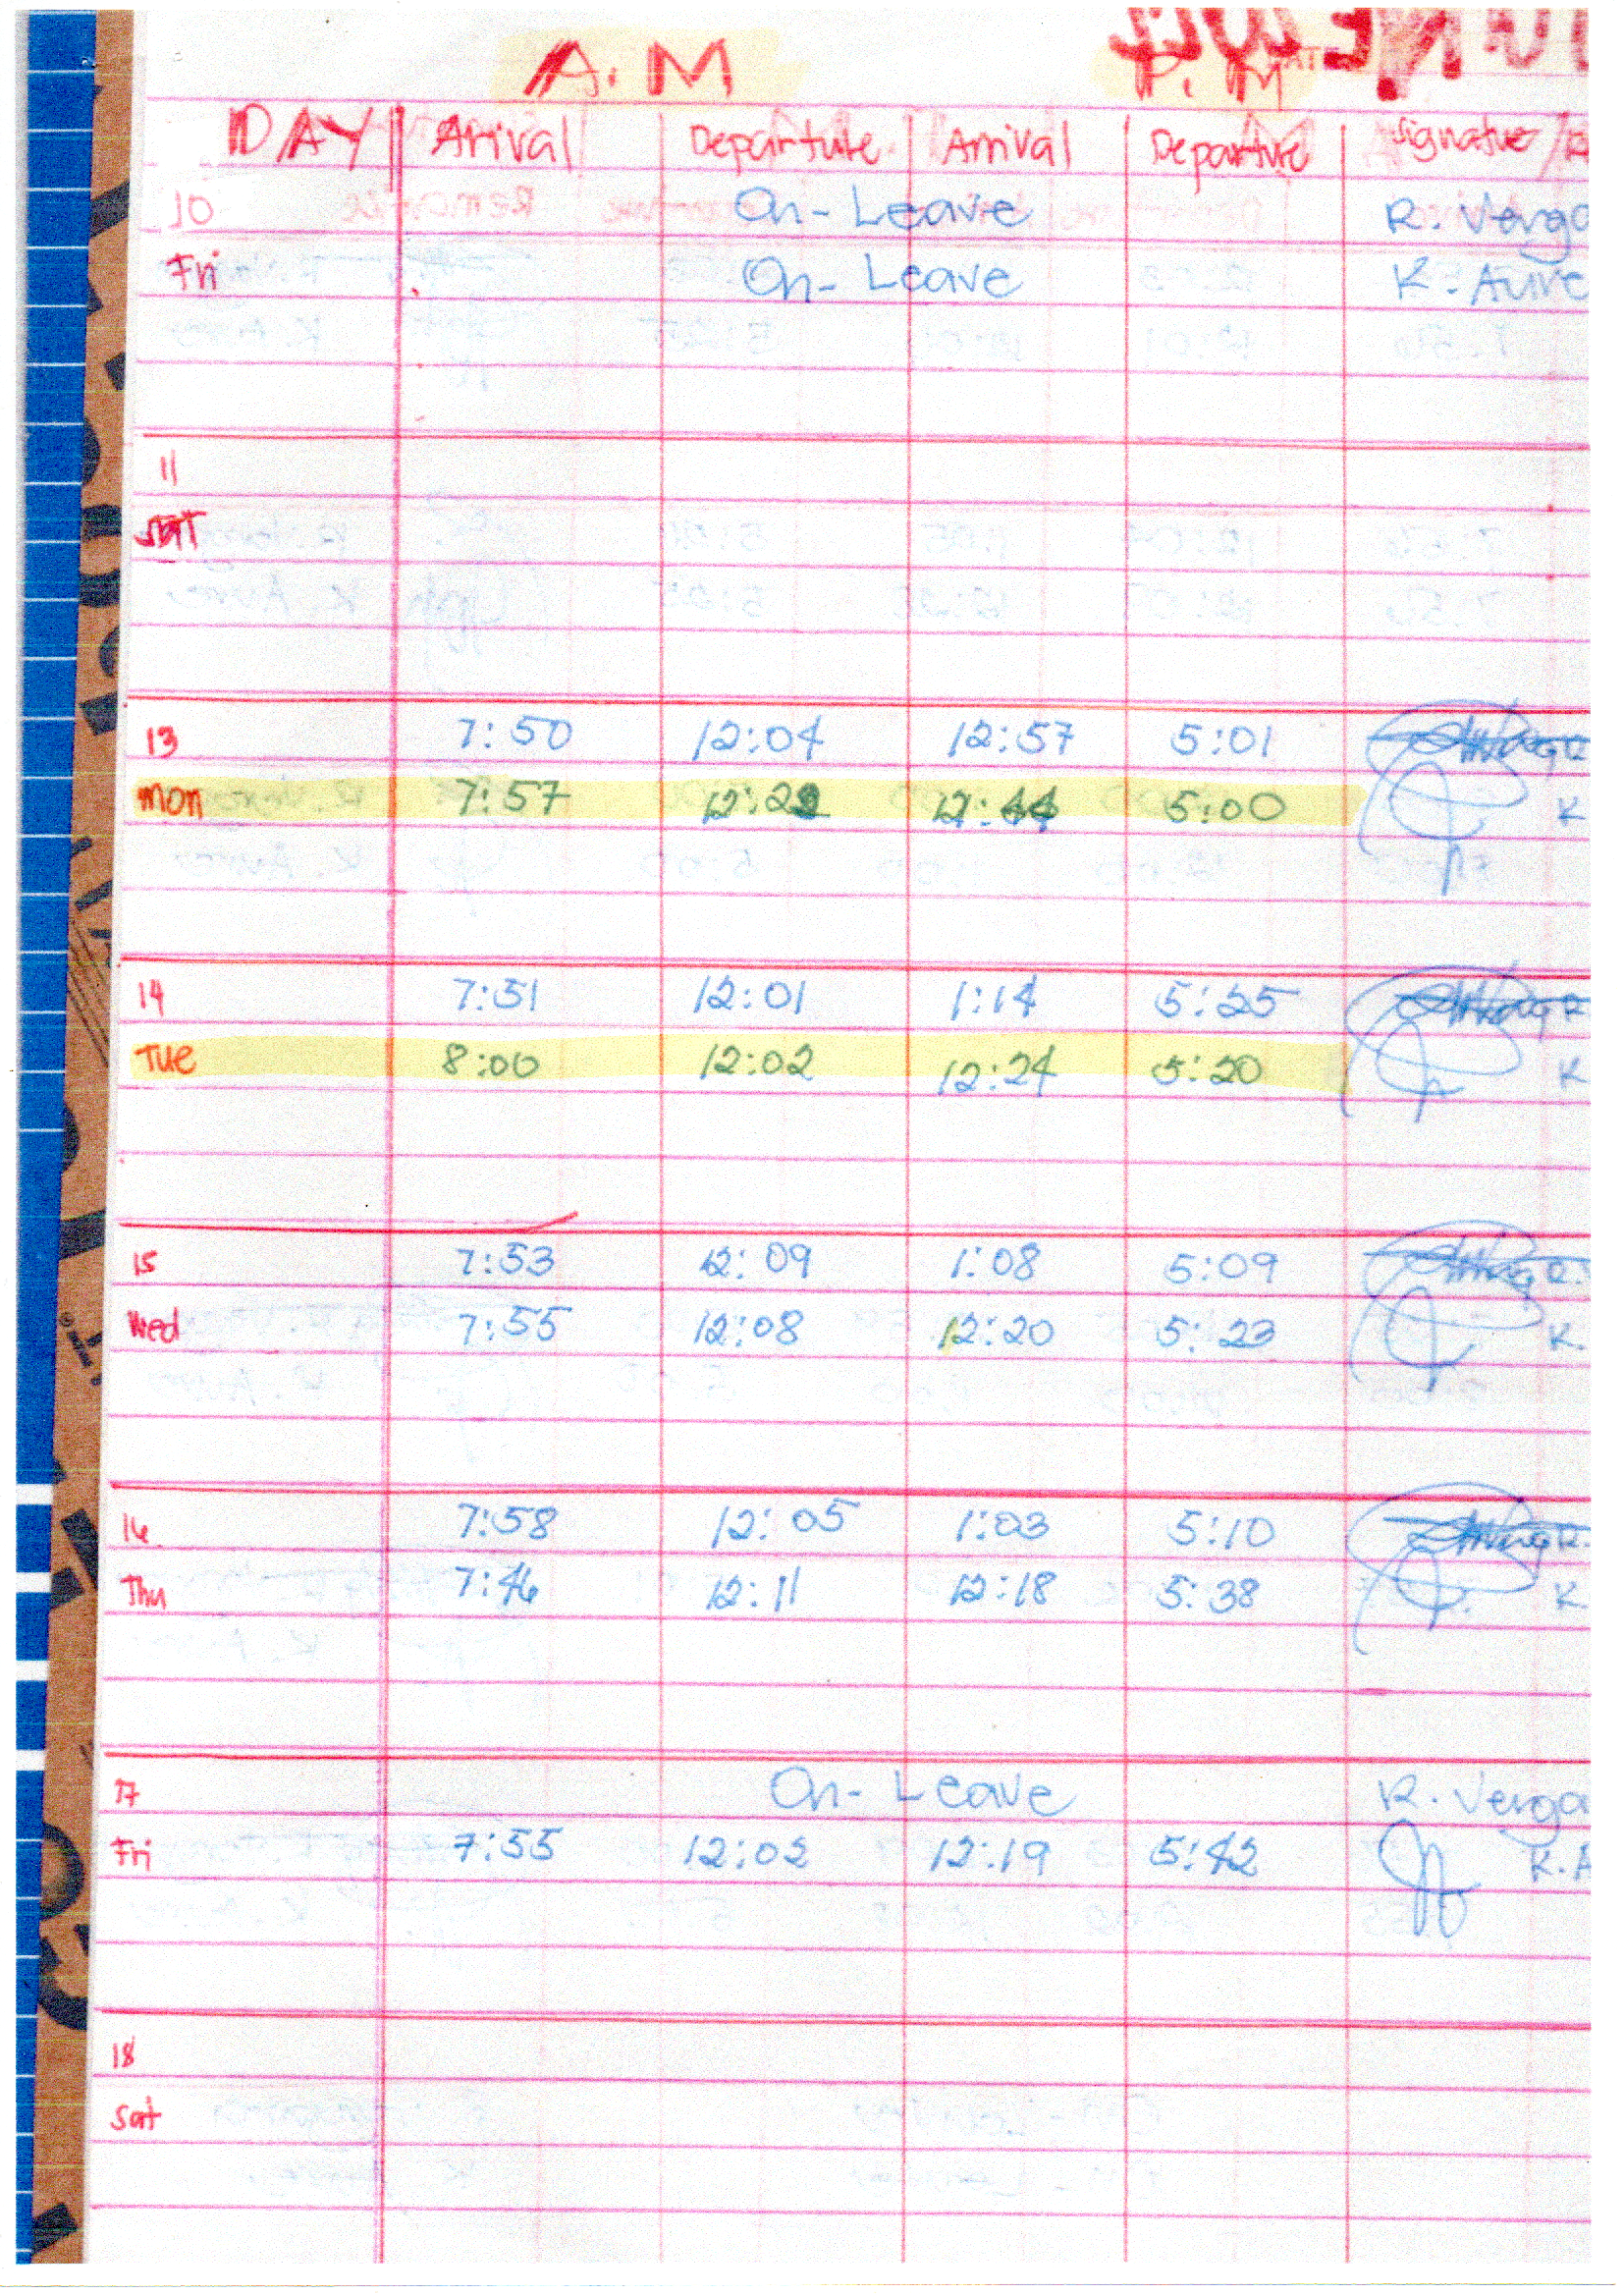 A.M P.M
DAY Arival Departure Arrival Departure Signature /
10 On-Leave R. Verga
Fri On-Leave K. Aure
11
SAT
13 7:50 12:04 12:57 5:01
Mon 7:57 12:22 12:44 5:00 K
14 7:51 12:01 1:14 5:25 R
TUE 8:00 12:02 12:24 5:20 K
15 7:53 12:09 1:08 5:09 R.
Wed 7:55 12:08 12:20 5:23 K.
16 7:58 12:05 1:03 5:10 R.
Thu 7:46 12:11 12:18 5:38 K
17 On-Leave R. Verga
Fri 7:55 12:02 12:19 5:42 K.A
18
Sat